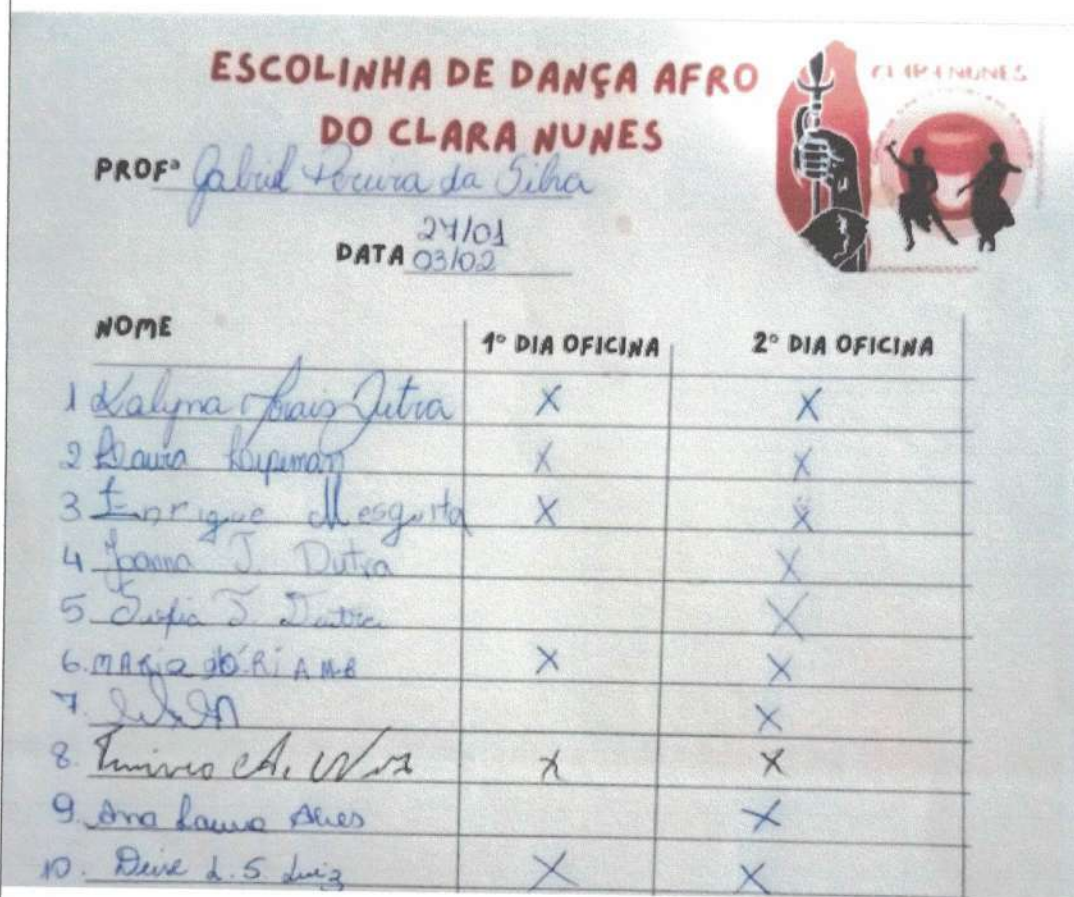 ESCOLINHA DE DANÇA AFRO
DO CLARA NUNES
CLARA NUNES
PROFª Gabriel Pereira da Silva
27/01
DATA 03/02
NOME 1º DIA OFICINA 2º DIA OFICINA
1 Kalyna Dutra X X
2 Laura X X
3 Enrique Mesquita X X
4 Joanna J. Dutra X
5 J. Dutra X
6. MARIA X X
7. X
8. A. X X
9. Ana Laura Alves X
10. Deise L. S. Luiz X X